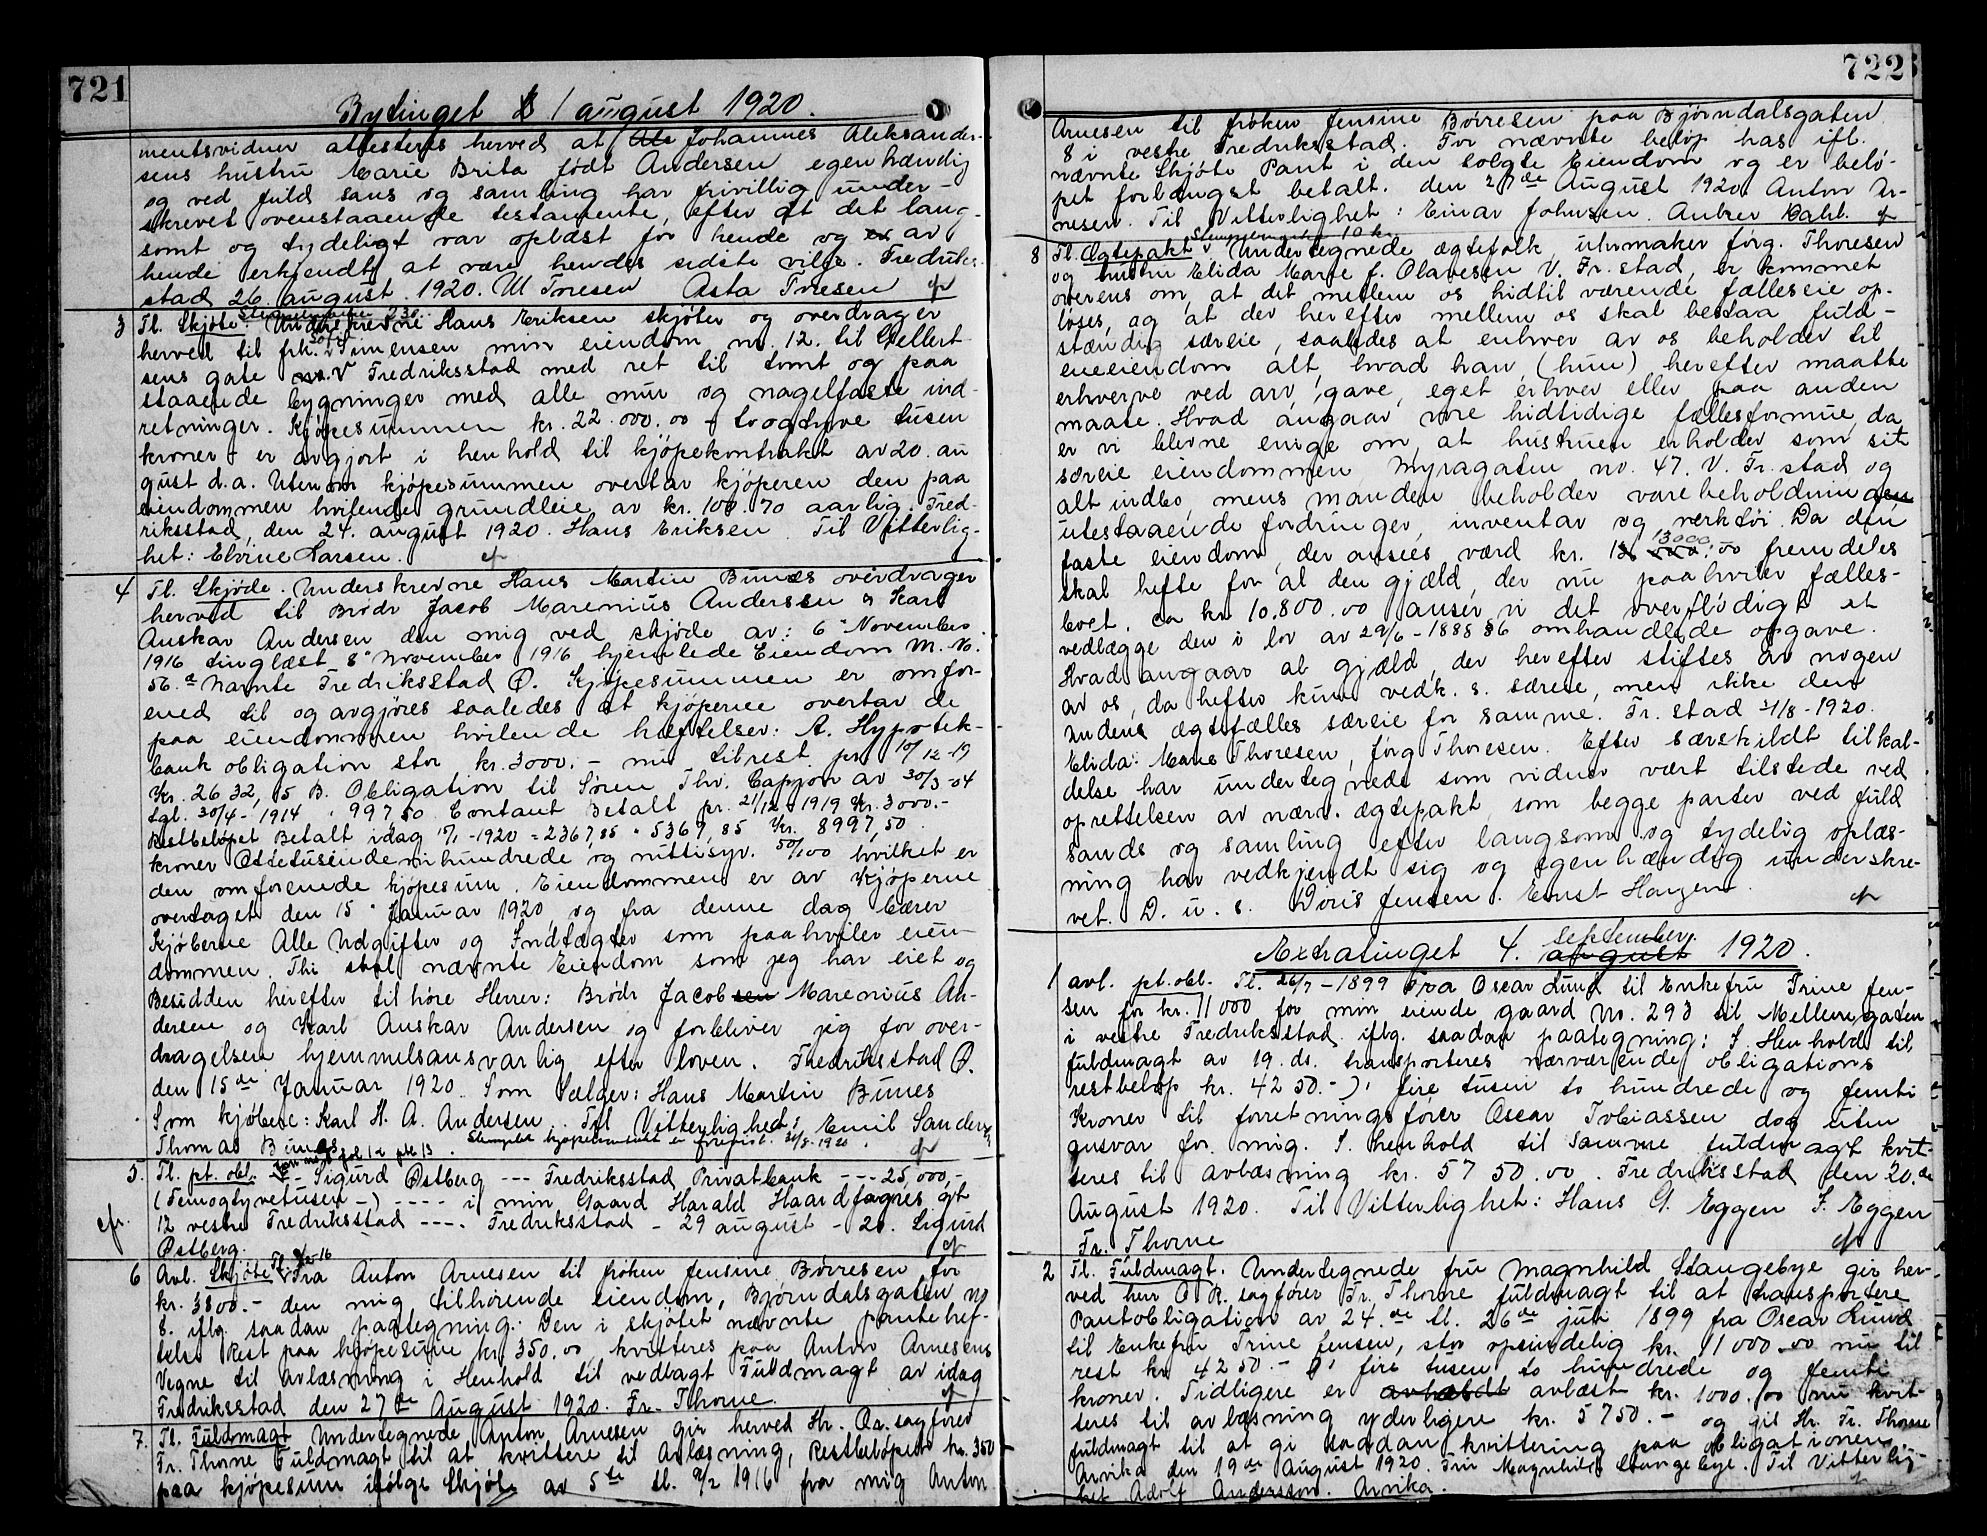 721
Bytinget 31 august 1920.
mentsvidner attesteres herved at Johannes Aleksander-
sens hustru Marie Brita født Andersen egenhændig
og ved fuld sans og samling har frivillig under-
skrevet ovenstaaende testamente, efter at det lang-
somt og tydeligt var oplæst for hende og er av
hende erkjendt at være hendes sidste vilje. Fredrik-
stad 26. august 1920. M Toresen Asta Toresen
3 Tl. Skjøte. Underskrevne Hans Eriksen skjøter og overdrager
herved til frk. Simensen min eiendom no. 12. til Gellert-
sens gate V Fredriksstad med ret til tomt og paa
staaende bygninger med alle mur og nagelfaste ind-
retninger. Kjøpesummen kr. 22.000.00 - toogtyve tusen
kroner - er avgjort i henhold til kjøpekontrakt av 20. au
gust d.a. Utenom kjøpesummen overtar kjøperen den paa
eiendommen hvilende grundleie av kr. 100.70 aarlig. Fred-
riksstad, den 24. august 1920. Hans Eriksen Til Vitterlig-
het: Elvine Larsen.
4 Tl. Skjøde. Underskrevne Hans Martin Bunes overdrager
herved til Brødr Jacob Marenius Anderssen & Karl
Anskar Andersen den mig ved skjøde av: 6" November
1916 tinglæst 8" November 1916 hjemlede Eiendom M. No.
56.a Narnte Fredriksstad Ø. Kjøpesummen er omfor-
ened til og avgjøres saaledes at kjøperne overtar de
paa eiendommen hvilende hæftelser: A. Hypotek-
bank obligation stor kr. 3000.- nu tilrest pr. 10/12-19
Kr. 2632,15 B. Obligation til Søren Thv. Cappon av 30/3-04
tgl. 30/4-1914 " 997,50 Contant Betalt pr. 21/12-1919 Kr. 3000.-
Restbeløpet Betalt idag 15/1-1920 = 2367,85 " 5367,85 Kr. 8997,50
kroner Ottetusendenihundrede og nittisyv. 50/100 hvilket er
den omforenede kjøpesum. Eiendommen er av Kjøperne
overtaget den 15" Januar 1920, og fra denne dag bærer
Kjøberne Alle Udgifter og Indtægter som paahviler eien-
dommen. Thi skal nævnte Eiendom som jeg har eiet og
Besidden herefter tilhøre Herrer: Brødr Jacobsen Marenius An-
dersen og Karl Anskar Andersen og forbliver jeg for over-
dragelsen hjemmelsansvarlig efter loven. Fredriksstad Ø.
den 15de Januar 1920. Som Sælger: Hans Martin Bunes
Som kjøbere: Karl H. A. Andersen. Til Vitterlighed: Emil Sander
Thomas Bunes Stemplet kjøpekontrakt er forevist. 26/8-1920
5. Tl. pt. obl. -- Sigurd Østberg --- Fredriksstad Privatbank --- 25,000,-
(Femogtyvetusen -) ---- i min Gaard Harald Haardfagres gt
12 vestre Fredriksstad ---- Fredriksstad - 29 august - 20. Sigurd
Østberg.
6 Avl. Skjøte Fra Anton Arnesen til frøken Jensine Børresen for
kr. 3800.- den mig tilhørende eiendom, Bjørndalsgaten no
8. iflg. saadan paategning: Den i skjøtet nævnte pantehef-
telse Rest paa kjøpesume kr. 350.00 kvitteres paa Anton Arnesens
Vegne til avlæsning i Henhold til vedlagt Fuldmagt av idag
Fredriksstad den 27de August 1920. Fr. Thorne.
7. Tl. Fuldmagt Undertegnede Anton Arnesen gir herved Hr. O.r. sagfører
Fr. Thorne Fuldmagt til at kvittere til Avlæsning, Restbeløpet kr. 350
paa kjøpesum ifølge Skjøte av 5te tl. 9/2 1916 fra mig Anton
722
Arnesen til frøken Jensine Børresen paa Bjørndalsgaten
8 i vestre Fredriksstad. For nævnte beløp has ifl.
nævnte Skjøte Pant i den solgte Eiendom og er belø-
pet forlængst betalt. den 27de August 1920 Anton Ar-
nesen. Til Vitterlighet: Einar Johnsen. Anker Dahl.
8 Tl. Ægtepakt. Undertegnede ægtefolk uhrmaker Jørg. Thoresen
og hustru Elida Marie f. Olavesen V. Fr.stad, er kommet
overens om, at det mellem os hidtil værende fælleseie op-
løses, og at der herefter mellem os skal bestaa fuld-
stændig særeie, saaledes at enhver av os beholder til
eneeiendom alt, hvad han (hun) herefter maatte
erhverve ved arv, gave, eget erhver eller paa anden
maate. Hvad angaar vore hidtidige fællesformue, da
er vi blevne enige om, at hustruen erholder som sit
særeie eiendommen Myragaten no. 47. V. Fr.stad og
alt indbo, mens manden beholder varebeholdningen
utestaaende fordringer, inventar og verktøi. Da den
faste eiendom, der ansees værd kr. 13000.00 fremdeles
skal hefte for al den gjæld, der nu paahviler fælles-
boet, ca kr. 10.800.00 anser vi det overflødigt at
vedlægge den i lov av 29/6-1888 §6 omhandlede opgave.
Hvad angaar al gjæld, der herefter stiftes av nogen
av os, da hefter kun vedk. s. særeie, men ikke den
andens ægtefælles særeie for samme. Fr.stad 21/8-1920.
Elida Marie Thoresen, Jørg Thoresen. Efter særskildt tilkal-
delse har undertegnede som vidner vært tilstede ved
oprettelsen av nærv. ægtepakt, som begge parter ved fuld
sands og samling efter langsom og tydelig oplæs-
ning har vedkjendt sig og egenhændig underskre-
vet. D. u. s. Doris Jensen. Ernst Hansen
Extratinget 4. september 1920.
1 avl. pt. obl. Tl. 26/7-1899 Fra Oscar Lund til Enkefru Trine Jen-
sen for kr. 11000 for min eiende gaard No. 293 til Mellemgaten
i vestre Fredriksstad. iflg. saadan paategning: I Henhold til
fuldmagt av 19. ds. transporteres nærværende obligations
restbeløp kr. 4250.-) fire tusen to hundrede og femti
Kroner til forretningsfører Oscar Tobiassen dog uten
ansvar for mig. I henhold til samme fuldmagt kvit-
teres til avlæsning kr. 5750.00. Fredriksstad den 20.de
August 1920. Til Vitterlighet: Hans G. Eggen S. Eggen
Fr. Thorne
2 Tl. Fuldmagt. Undertegnede fru Magnhild Stangebye gir her-
ved hrr O. R. sagfører Fr. Thorne fuldmagt til at transportere
Pantobligation av 24.de tl. 26de juli 1899 fra Oscar Lund
til Enkefru Trine Jensen, stor oprindelig kr. 11000.00 nu til
rest kr 4250.- fire tusen to hundrede og femti
kroner. Tidligere er avlæst kr. 1000.00 nu kvit-
teres til avlæsning yderligere kr. 5750.- og gir Hr. Fr. Thorne
fuldmagt til at gi saadan kvittering paa obligationen
Arvika den 19de August 1920. Fru Magnhild Stangebye. Til Vitterlig-
het Adolf Andersson. Arvika.